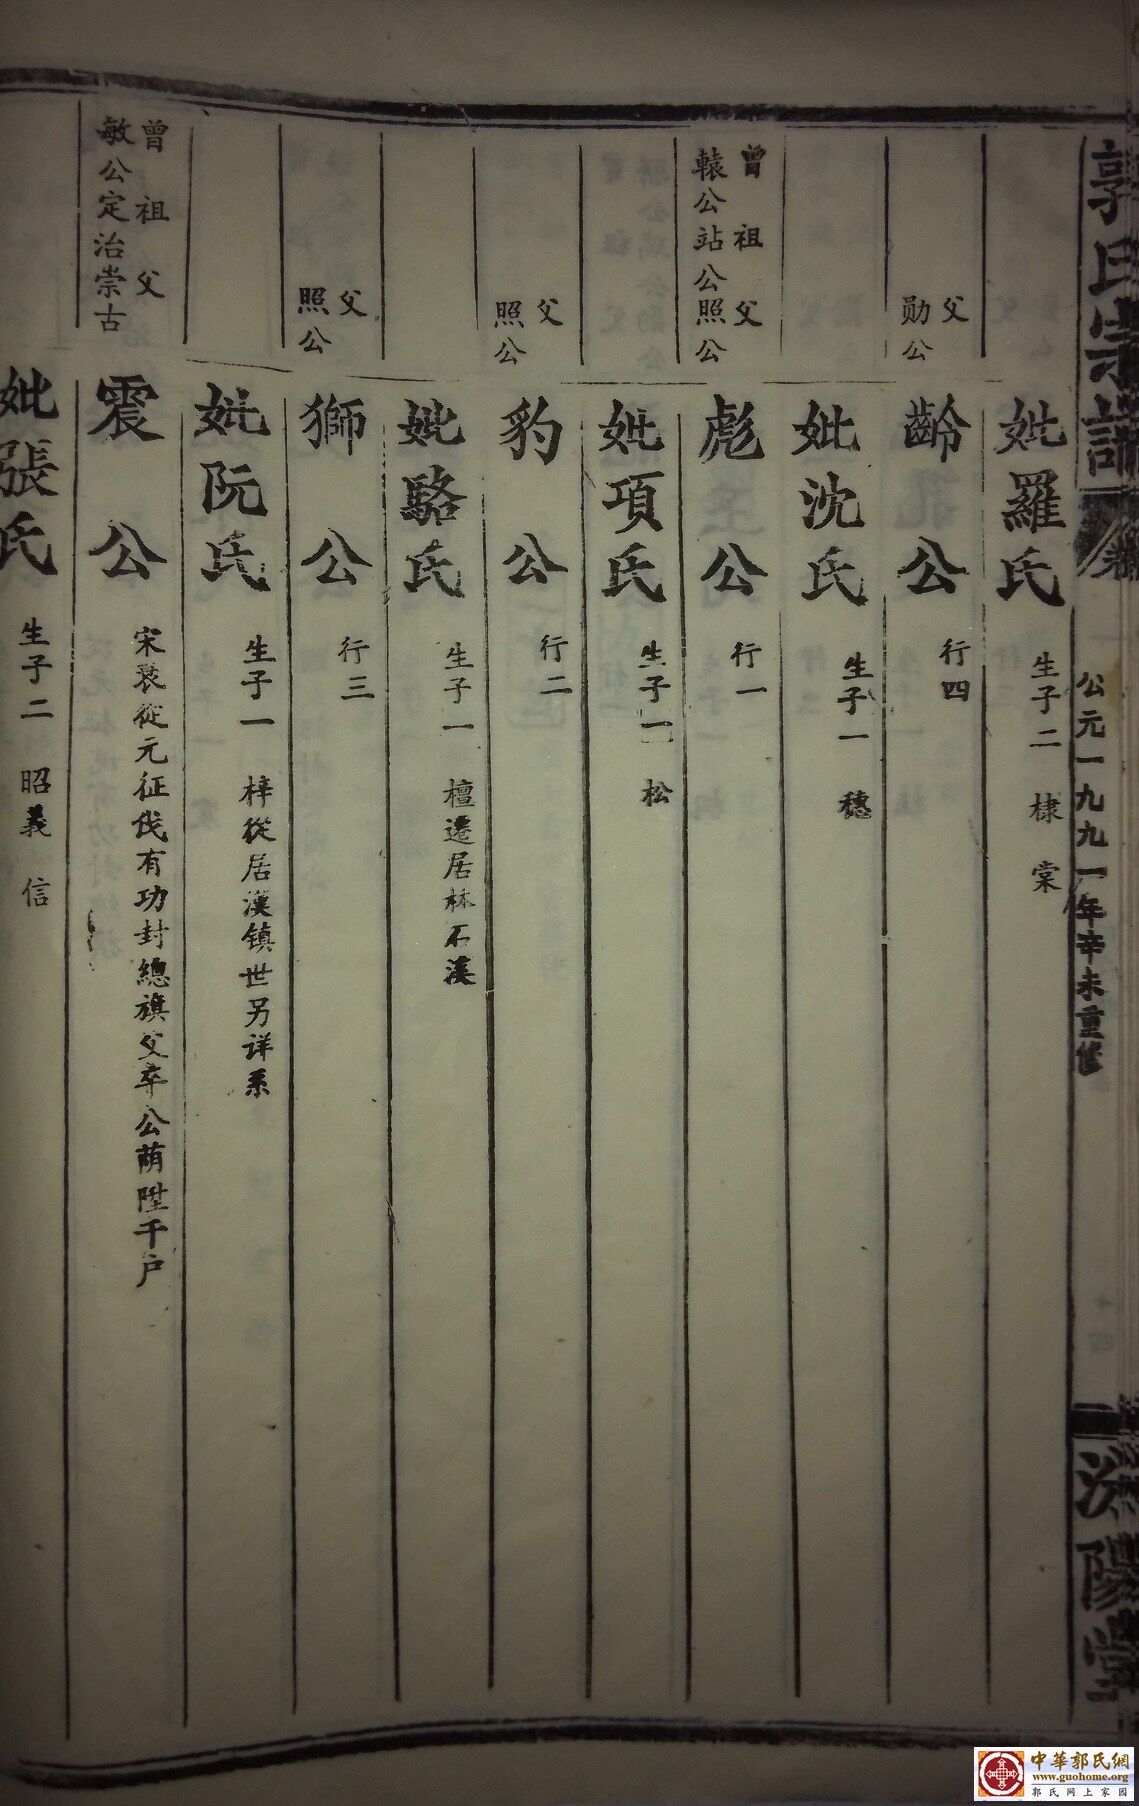 郭氏宗譜
公元一九九一年辛未重修
十四
汾陽堂
妣羅氏 生子二 棣 棠
父
勛公
齡公 行四
妣沈氏 生子一 穗
曾祖父
轅公站公照公
彪公 行一
妣項氏 生子一 松
父
照公
豹公 行二
妣駱氏 生子一 檀遷居林石溪
父
照公
獅公 行三
妣阮氏 生子一 梓從居漢镇世另详系
曾祖父
敏公定治崇古
震公 宋衰從元征伐有功封總旗父卒公蔭陞千户
妣張氏 生子二 昭義 信
中華郭氏網
www.guohome.org
郭氏网上家园